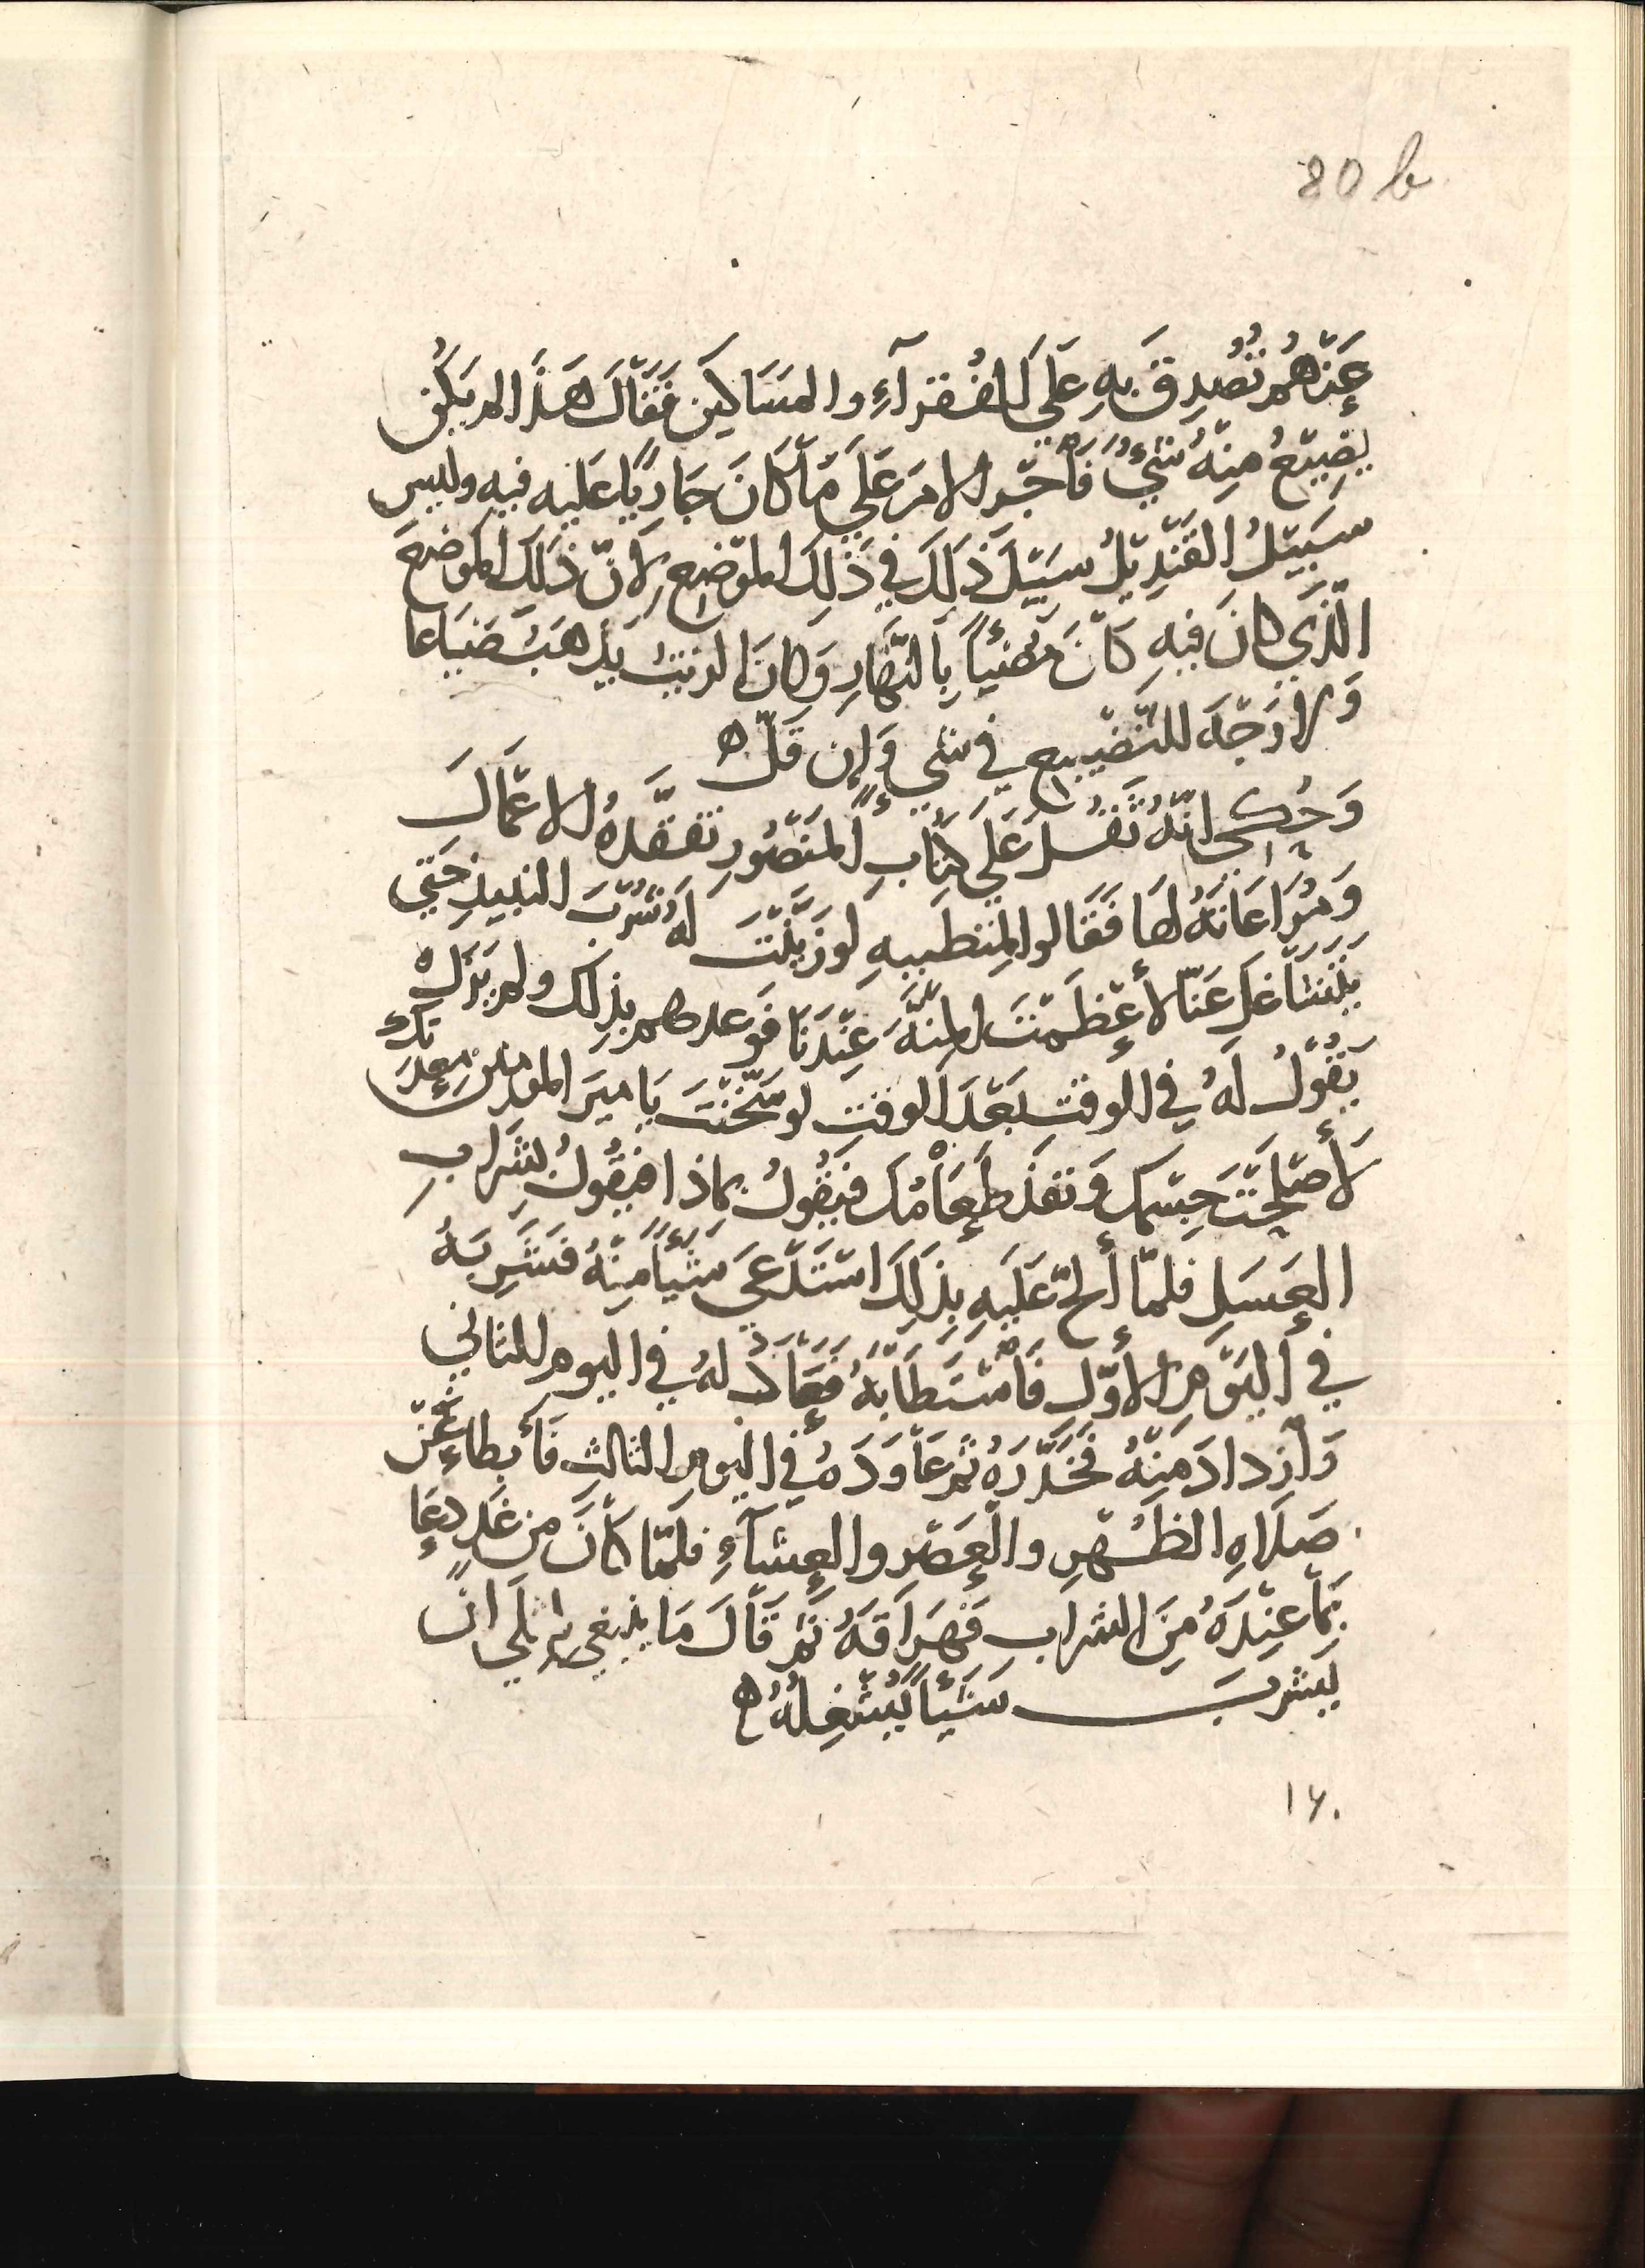 80 b
عَنْهُم تُصُدِقَ بِهِ عَلَى الفُقَرَآءِ والمسَاكِين فَقَالَ هَذَا لم يَكُن
يَضِيعُ مِنْهُ شَيْءٌ فَأَجْرِ الامرَ عَلَى مَا كَانَ جَارِيًا عَلَيه فيه وليس
سَبِيْلُ القَنْدِيْلِ سَبِيْلَ ذَلِكَ فِي ذَلِكَ المَوْضِعِ لِانَّ ذَلِكَ المَوضِعَ
الّذِي كانَ فيهِ كَانَ مُضِيًا بِالنَّهَارِ وَكانَ الزيتُ يَذهَبُ ضَيَاعا
وَلا وَجْهَ للتَّضْيِيعِ في شيءٍ وَإن قَلَّ ه
وَحُكِىَ انّهُ ثَقُلَ عَلَى كُتَّابِ المَنْصُورِ تفقّدهُ الاعْمَالَ
وَمُرَاعَاتهُ لهَا فَقَالوا لمتطَببِهِ لو زَيَّنْتَ لَهُ شُرْبَ النبيذِ حَتى
يَتَشَاغَلَ عَنّا لأعْظَمْتَ المِنّةَ عِنْدَنَا فَوَعدهم بذلِكَ ولم يَزَلْ
يَقُولُ لَهُ فِي الوقتِ بَعْدَ الوقتِ لو سَخّنْتَ يَا ميرَ المومنين مَعِدَتكَ
لأَصْلَحْتَ جِسْمكَ وَنفذ طَعَامُكَ فيَقُولُ بماذا فيقُولُ بشَرابِ
العَسَلِ فلمّا ألحَّ عَلَيهِ بِذَلِكَ استَدْعَى شَيْئاً مِنْهُ فشَرِبَهُ
في اليَوْمِ الاوّلِ فَاسْتَطَابَهُ فَعَادَ لهُ فِي اليوم الثاني
وَازدادَ مِنْهُ فَخَدَّرَهُ ثم عَاوَدَهُ فِي اليوم الثالثِ فَأَبطاءَ عَنْ
صَلاهِ الظُهْرِ والْعَصْرِ والعِشآءِ فلمّا كَانَ من غَدٍ دعَا
بِمَا عِنْدَهُ مِنَ الشرابِ فَهَرَاقَهُ ثم قَالَ مَا ينبغي لمثلي انْ
يشربَ شَيْئاً يَشْغِلُهُ ه
١٦٠